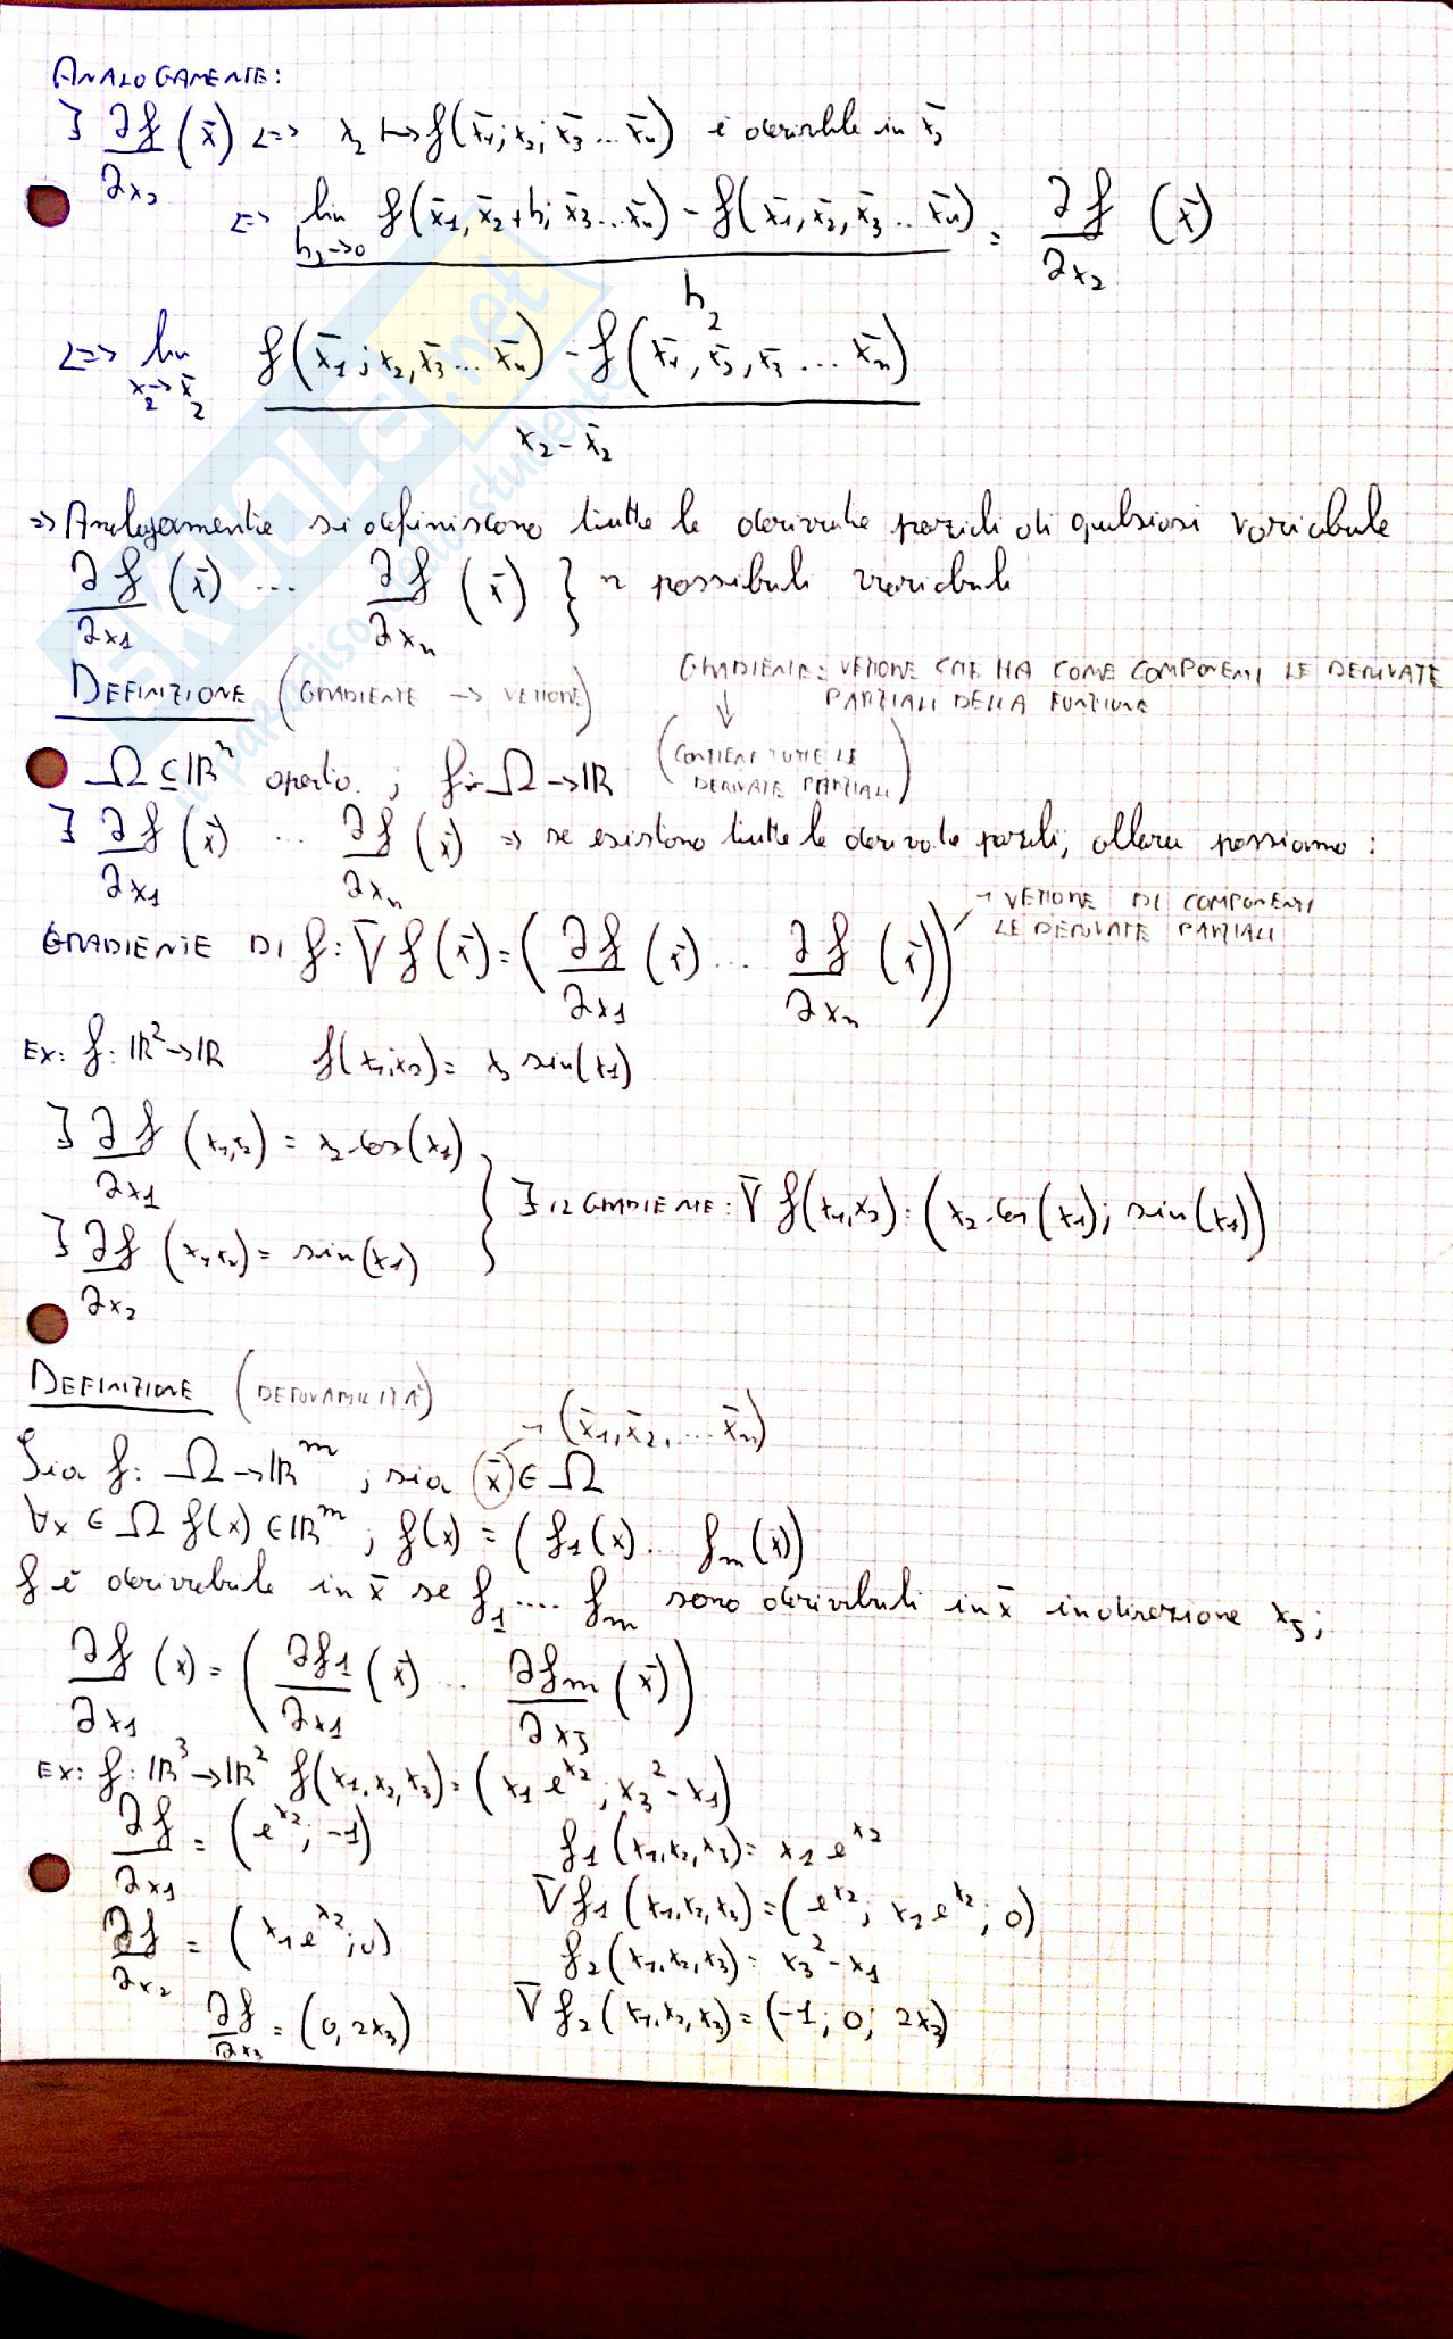 ANALOGAMENTE:
∃ ∂f/∂x₂ (x̄) <=> x₂ ↦ f(x̄₁; x₂; x̄₃ ... x̄ₙ) è derivabile in x̄₂
<=> lim h₂→0 f(x̄₁, x̄₂+h; x̄₃ ... x̄ₙ) - f(x̄₁, x̄₂, x̄₃ ... x̄ₙ) / h₂ = ∂f/∂x₂ (x̄)
<=> lim x₂→x̄₂ f(x̄₁; x₂, x̄₃ ... x̄ₙ) - f(x̄₁, x̄₂, x̄₃ ... x̄ₙ) / x₂ - x̄₂
=> Analogamente si definiscono tutte le derivate parziali di qualsiasi variabile
∂f/∂x₁ (x̄) ... ∂f/∂xₙ (x̄) } n possibili variabili
DEFINIZIONE (GRADIENTE → VETTORE)
GRADIENTE: VETTORE CHE HA COME COMPONENTI LE DERIVATE
PARZIALI DELLA FUNZIONE
↓
(CONTIENE TUTTE LE
DERIVATE PARZIALI)
Ω ⊆ ℝⁿ aperto ; f: Ω → ℝ
∃ ∂f/∂x₁ (x̄) ... ∂f/∂xₙ (x̄) => se esistono tutte le derivate parziali, allora possiamo :
GRADIENTE DI f: ∇f(x̄) = (∂f/∂x₁ (x̄) ... ∂f/∂xₙ (x̄))
→ VETTORE DI COMPONENTI
LE DERIVATE PARZIALI
EX: f: ℝ² → ℝ f(x₁; x₂) = x₂ sin(x₁)
∃ ∂f/∂x₁ (x₁, x₂) = x₂ · cos(x₁)
∃ ∂f/∂x₂ (x₁, x₂) = sin(x₁)
} ∃ IL GRADIENTE: ∇f(x₁, x₂) = (x₂ · cos(x₁); sin(x₁))
DEFINIZIONE (DERIVABILITÀ)
→ (x̄₁, x̄₂, ... x̄ₙ)
Sia f: Ω → ℝᵐ ; sia x̄ ∈ Ω
∀x ∈ Ω f(x) ∈ ℝᵐ ; f(x) = (f₁(x) ... fₘ(x))
f è derivabile in x̄ se f₁ .... fₘ sono derivabili in x̄ in direzione xⱼ;
∂f/∂x₁ (x) = (∂f₁/∂x₁ (x̄) ... ∂fₘ/∂x₃ (x̄))
EX: f: ℝ³ → ℝ² f(x₁, x₂, x₃) = (x₁ e^x₂ ; x₃² - x₁)
∂f/∂x₁ = (e^x₂; -1)
f₁(x₁, x₂, x₃) = x₁ e^x₂
∇f₁(x₁, x₂, x₃) = (e^x₂; x₂ e^x₂; 0)
∂f/∂x₂ = (x₁ e^x₂; 0)
f₂(x₁, x₂, x₃) = x₃² - x₁
∂f/∂x₃ = (0, 2x₃)
∇f₂(x₁, x₂, x₃) = (-1; 0; 2x₃)